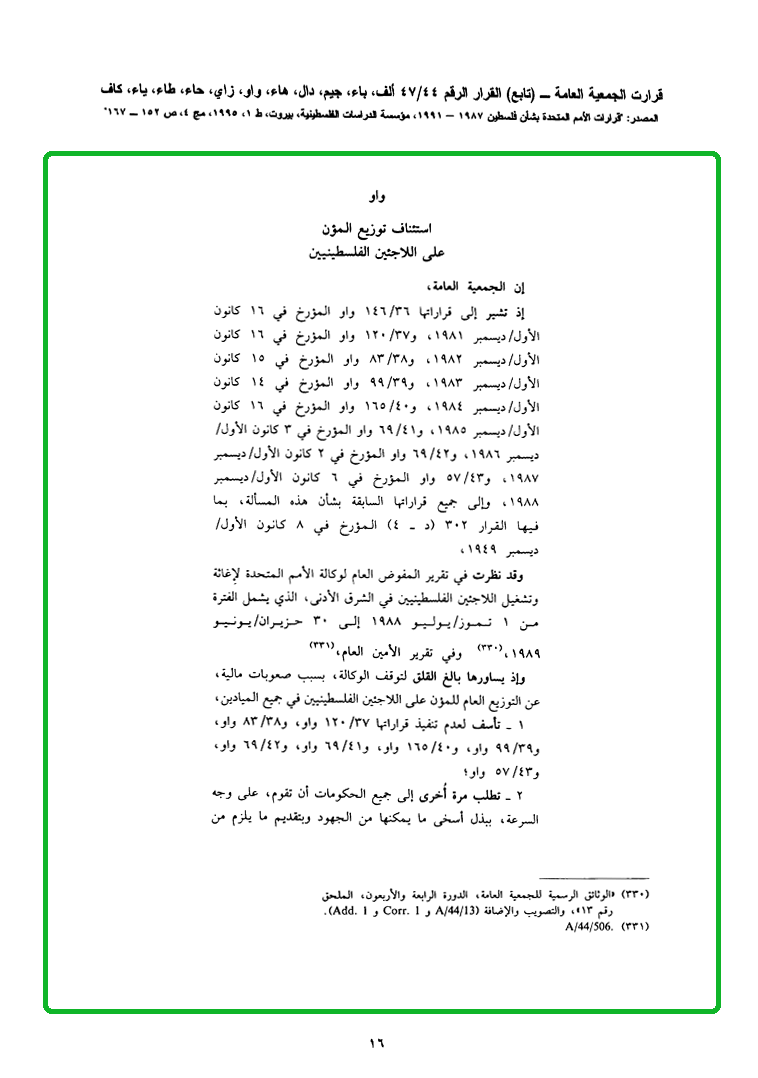 قرارت الجمعية العامة ـــ (تابع) القرار الرقم ٤٧/٤٤ ألف، باء، جيم، دال، هاء، واو، زاي، حاء، طاء، ياء، كاف
المصدر: "قرارات الأمم المتحدة بشأن فلسطين ١٩٨٧ – ١٩٩١، مؤسسة الدراسات الفلسطينية، بيروت، ط ١، ١٩٩٥، مج ٤، ص ١٥٢ – ١٦٧"
واو
استئناف توزيع المؤن
على اللاجئين الفلسطينيين
إن الجمعية العامة،
إذ تشير إلى قراراتها ١٤٦/٣٦ واو المؤرخ في ١٦ كانون
الأول/ديسمبر ١٩٨١، و١٢٠/٣٧ واو المؤرخ في ١٦ كانون
الأول/ديسمبر ١٩٨٢، و٨٣/٣٨ واو المؤرخ في ١٥ كانون
الأول/ديسمبر ١٩٨٣، و٩٩/٣٩ واو المؤرخ في ١٤ كانون
الأول/ديسمبر ١٩٨٤، و١٦٥/٤٠ واو المؤرخ في ١٦ كانون
الأول/ديسمبر ١٩٨٥، و٦٩/٤١ واو المؤرخ في ٣ كانون الأول/
ديسمبر ١٩٨٦، و٦٩/٤٢ واو المؤرخ في ٢ كانون الأول/ديسمبر
١٩٨٧، و٥٧/٤٣ واو المؤرخ في ٦ كانون الأول/ديسمبر
١٩٨٨، وإلى جميع قراراتها السابقة بشأن هذه المسألة، بما
فيها القرار ٣٠٢ (د ـ ٤) المؤرخ في ٨ كانون الأول/
ديسمبر ١٩٤٩،
وقد نظرت في تقرير المفوض العام لوكالة الأمم المتحدة لإغاثة
وتشغيل اللاجئين الفلسطينيين في الشرق الأدنى، الذي يشمل الفترة
من ١ تموز/يوليو ١٩٨٨ إلى ٣٠ حزيران/يونيو
١٩٨٩،(٣٣٠) وفي تقرير الأمين العام،(٣٣١)
وإذ يساورها بالغ القلق لتوقف الوكالة، بسبب صعوبات مالية،
عن التوزيع العام للمؤن على اللاجئين الفلسطينيين في جميع الميادين،
١ ـ تأسف لعدم تنفيذ قراراتها ١٢٠/٣٧ واو، و٨٣/٣٨ واو،
و٩٩/٣٩ واو، و١٦٥/٤٠ واو، و٦٩/٤١ واو، و٦٩/٤٢ واو،
و٥٧/٤٣ واو؛
٢ ـ تطلب مرة أُخرى إلى جميع الحكومات أن تقوم، على وجه
السرعة، ببذل أسخى ما يمكنها من الجهود وبتقديم ما يلزم من
(٣٣٠) «الوثائق الرسمية للجمعية العامة، الدورة الرابعة والأربعون، الملحق
رقم ١٣»، والتصويب والإضافة (A/44/13 و Corr. 1 و Add. 1).
(٣٣١) A/44/506.
١٦